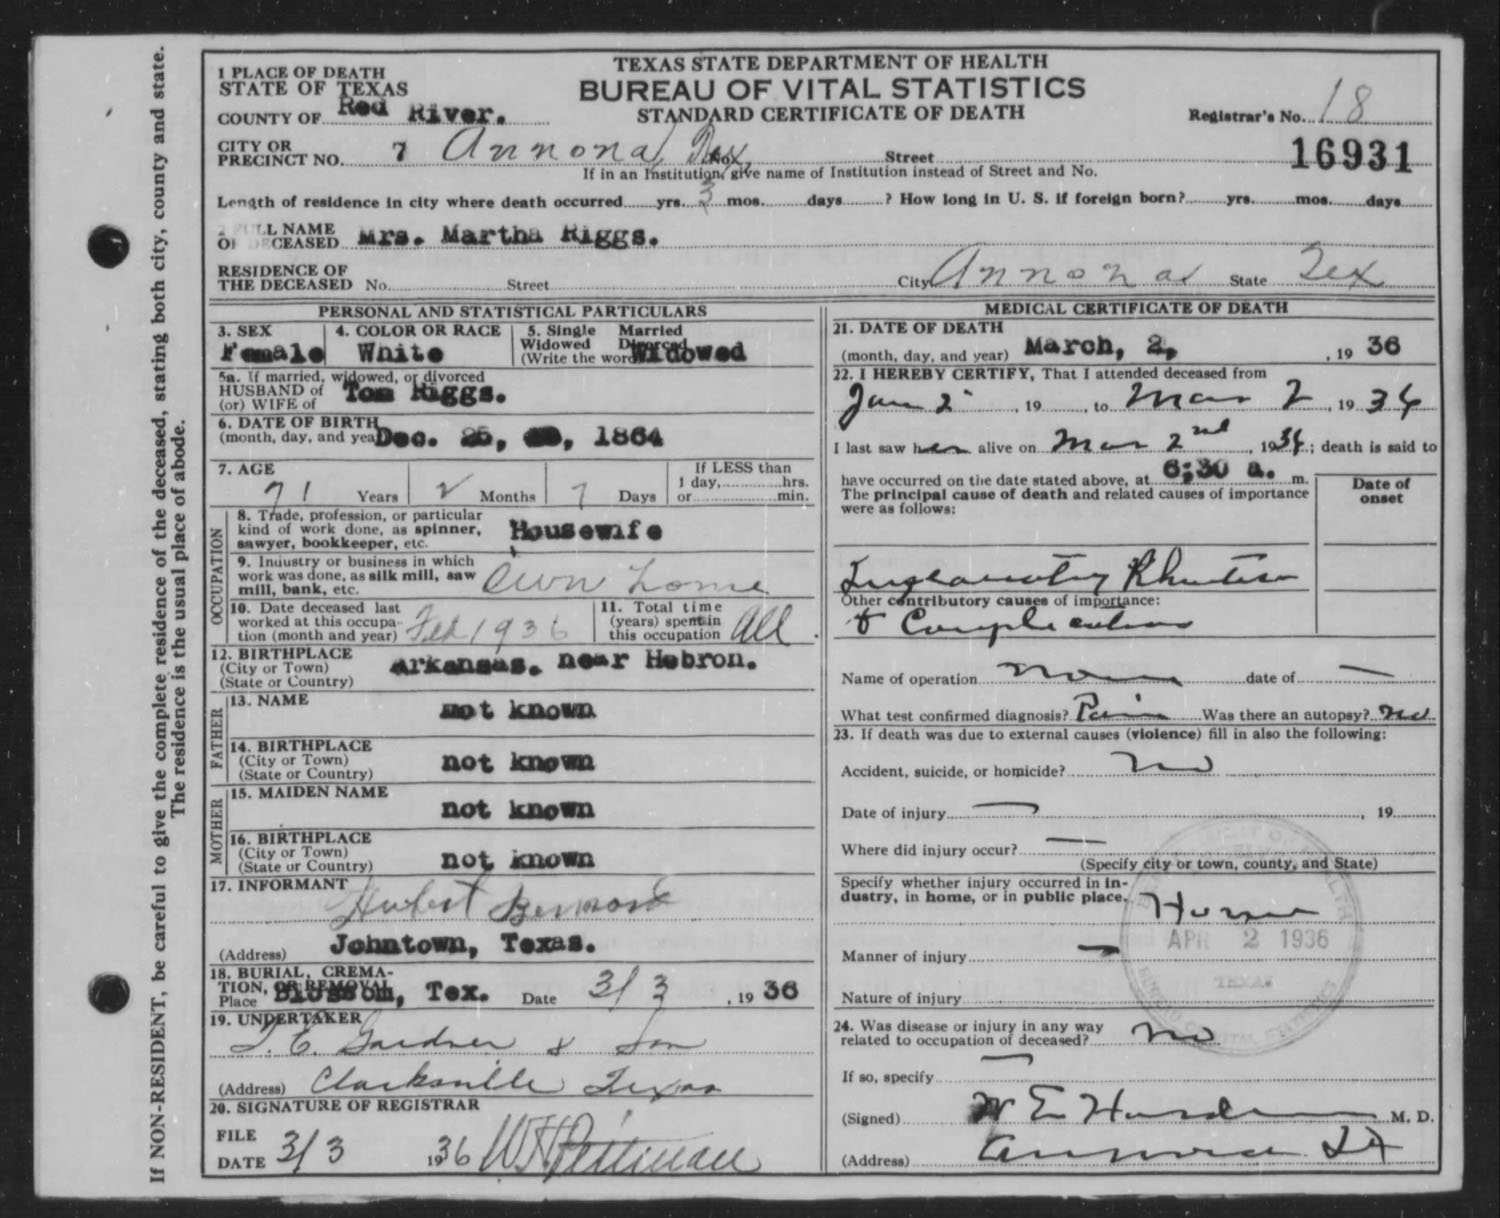 TEXAS STATE DEPARTMENT OF HEALTH
BUREAU OF VITAL STATISTICS
STANDARD CERTIFICATE OF DEATH
1 PLACE OF DEATH
STATE OF TEXAS
COUNTY OF Red River.
Registrar's No. 18
16931
CITY OR
PRECINCT NO. 7 Annona Tex No. Street
If in an Institution, give name of Institution instead of Street and No.
Length of residence in city where death occurred yrs. 3 mos. days ? How long in U. S. if foreign born? yrs. mos. days
2 FULL NAME
OF DECEASED Mrs. Martha Riggs.
RESIDENCE OF
THE DECEASED No. Street City Annona State Tex
PERSONAL AND STATISTICAL PARTICULARS
3. SEX Female
4. COLOR OR RACE White
5. Single Married
Widowed Divorced
(Write the word) Widowed
5a. If married, widowed, or divorced
HUSBAND of
(or) WIFE of Tom Riggs.
6. DATE OF BIRTH
(month, day, and year) Dec. 25, 1864
7. AGE
71 Years 2 Months 7 Days
If LESS than
1 day, hrs.
or min.
OCCUPATION
8. Trade, profession, or particular
kind of work done, as spinner,
sawyer, bookkeeper, etc. Housewife
9. Industry or business in which
work was done, as silk mill, saw
mill, bank, etc. Own home
10. Date deceased last
worked at this occupa-
tion (month and year) Feb 1936
11. Total time
(years) spent in
this occupation All
12. BIRTHPLACE
(City or Town)
(State or Country) Arkansas. near Hebron.
FATHER
13. NAME not known
14. BIRTHPLACE
(City or Town)
(State or Country) not known
MOTHER
15. MAIDEN NAME not known
16. BIRTHPLACE
(City or Town)
(State or Country) not known
17. INFORMANT Hubert
(Address) Johntown, Texas.
18. BURIAL, CREMA-
TION, OR REMOVAL
Place Blossom, Tex. Date 3/3, 1936
19. UNDERTAKER
T. E. Gardner & Son
(Address) Clarksville Texas
20. SIGNATURE OF REGISTRAR
FILE
DATE 3/3 1936 W H Pettman
MEDICAL CERTIFICATE OF DEATH
21. DATE OF DEATH
(month, day, and year) March, 2, , 1936
22. I HEREBY CERTIFY, That I attended deceased from
Jan 2 , 19 , to Mar 2 , 1936
I last saw her alive on Mar 2nd , 1936; death is said to
have occurred on the date stated above, at 6;30 a. m.
The principal cause of death and related causes of importance
were as follows:
Date of
onset
Inflamatory
Other contributory causes of importance:
& Complications
Name of operation None date of —
What test confirmed diagnosis? Was there an autopsy? no
23. If death was due to external causes (violence) fill in also the following:
Accident, suicide, or homicide? no
Date of injury — , 19
Where did injury occur? —
(Specify city or town, county, and State)
Specify whether injury occurred in in-
dustry, in home, or in public place. Home
Manner of injury —
Nature of injury
APR 2 1936
TEXAS
24. Was disease or injury in any way
related to occupation of deceased? no
If so, specify —
(Signed) W E M. D.
(Address) Annona Tx
If NON-RESIDENT, be careful to give the complete residence of the deceased, stating both city, county and state.
The residence is the usual place of abode.